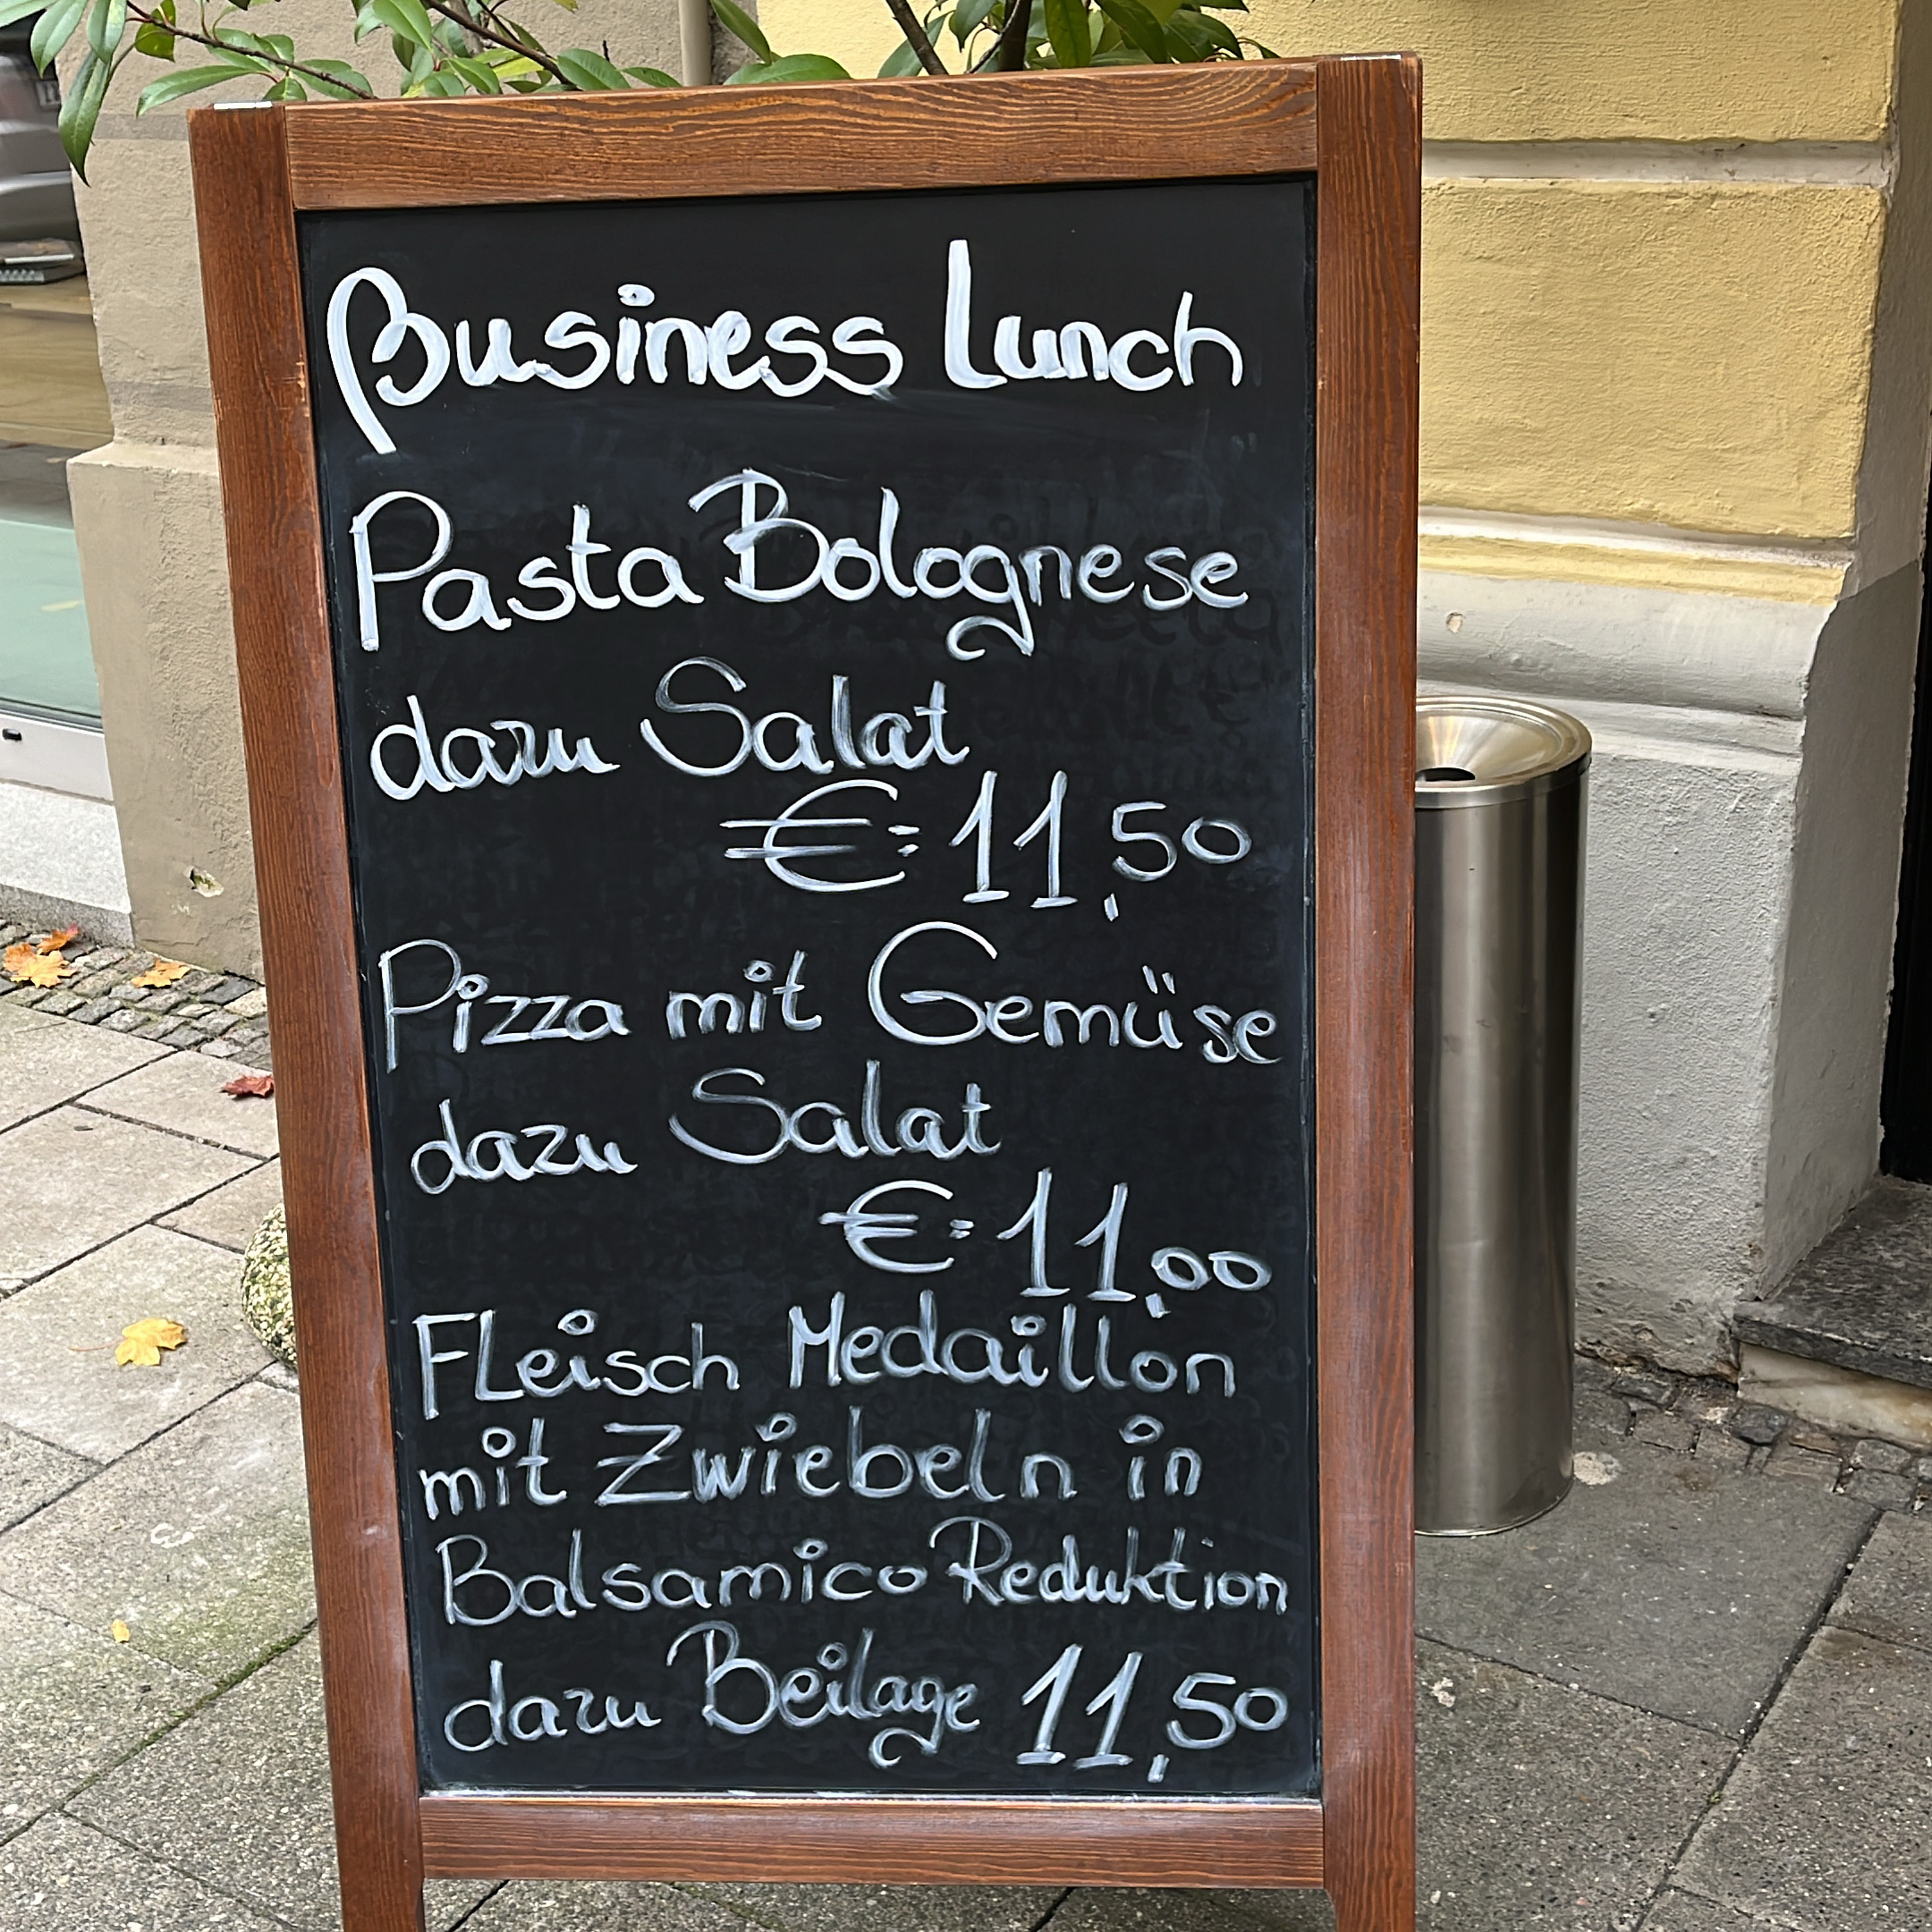 Business Lunch
Pasta Bolognese
dazu Salat
€: 11,50
Pizza mit Gemüse
dazu Salat
€: 11,00
Fleisch Medaillon
mit Zwiebeln in
Balsamico Reduktion
dazu Beilage 11,50